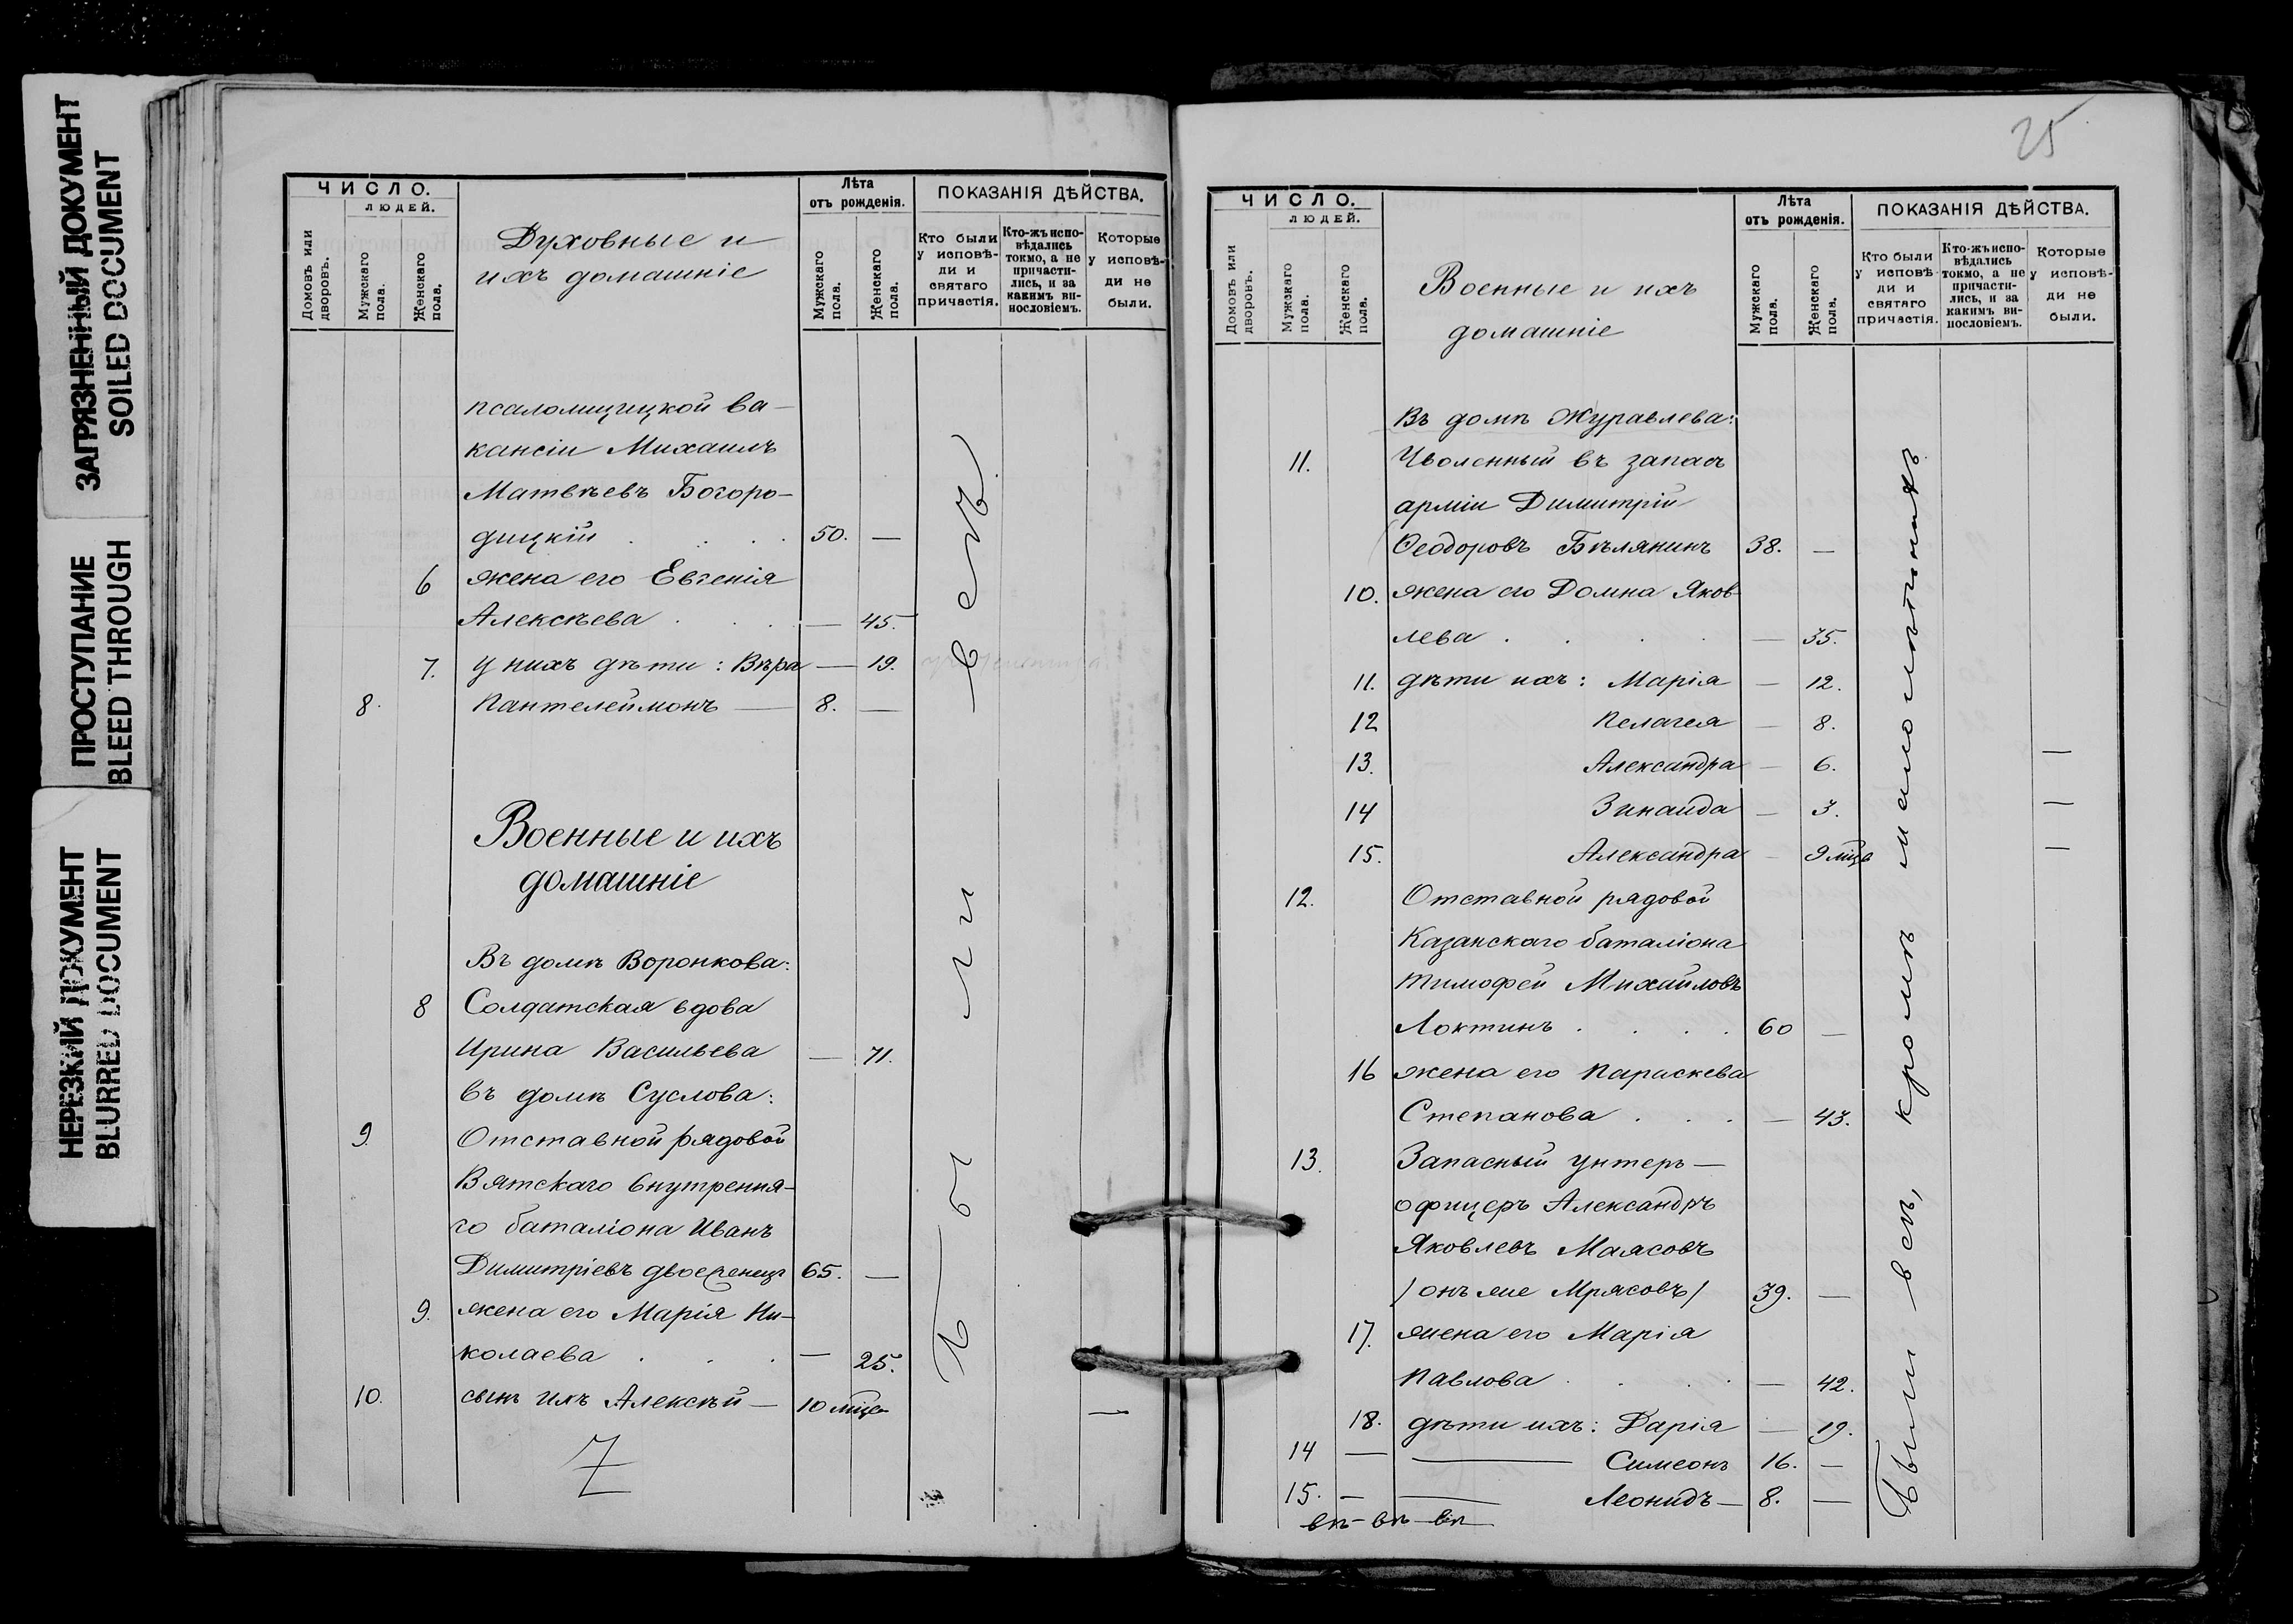 ЗАГРЯЗНЕННЫЙ ДОКУМЕНТ
SOILED DOCUMENT
ПРОСТУПАНИЕ
BLEED THROUGH
НЕРЕЗКИЙ ДОКУМЕНТ
BLURRED DOCUMENT
ЧИСЛО.
ЛЮДЕЙ.
Домовъ или дворовъ.
Мужскаго пола.
Женскаго пола.
Духовные и
ихъ домашніе
Лѣта
отъ рожденія.
Мужскаго пола.
Женскаго пола.
ПОКАЗАНІЯ ДѢЙСТВА.
Кто были
у исповѣ-
ди и
святаго
причастія.
Кто-жъ испо-
вѣдались
токмо, а не
причасти-
лись, и за
какимъ ви-
нословіемъ.
Которые
у исповѣ-
ди не
были.
псаломщицкой ва-
кансіи Михаилъ
Матвѣевъ Богоро-
дицкій . . . 50. —
6 жена его Евгенія
Алексѣева . . — 45.
7. у нихъ дѣти: Вѣра — 19.
8. Пантелеймонъ — 8. —
Военные и ихъ
домашніе
Въ домѣ Воронкова:
8 Солдатская вдова
Ирина Васильева — 71.
въ домѣ Суслова:
9. Отставной рядовой
Вятскаго внутрення-
го баталіона Иванъ
Димитріевъ 65. —
9. жена его Марія Ни-
колаева . . . — 25.
10. сынъ ихъ Алексѣй — 10 мѣце —
Были всѣ
25
ЧИСЛО.
ЛЮДЕЙ.
Домовъ или дворовъ.
Мужскаго пола.
Женскаго пола.
Военные и ихъ
домашніе
Лѣта
отъ рожденія.
Мужскаго пола.
Женскаго пола.
ПОКАЗАНІЯ ДѢЙСТВА.
Кто были
у исповѣ-
ди и
святаго
причастія.
Кто-жъ испо-
вѣдались
токмо, а не
причасти-
лись, и за
какимъ ви-
нословіемъ.
Которые
у исповѣ-
ди не
были.
Въ домѣ Журавлева:
11. Уволенный въ запасъ
арміи Димитрій
Ѳеодоровъ Бѣлянинъ 38. —
10. жена его Домна Яков-
лева . . . . — 35.
11. дѣти ихъ: Марія — 12.
12 Пелагея — 8.
13. Александра — 6. —
14 Зинаида — 3. —
15. Александра — 9 мѣце —
12. Отставной рядовой
Казанскаго баталіона
Тимофей Михайловъ
Локтинъ . . . 60 —
16 жена его Параскева
Степанова . . . — 43.
13. Запасный унтеръ-
офицеръ Александръ
Яковлевъ Маясовъ
/онъ же Мрясовъ/ 39. —
17. жена его Марія
Павлова . . . — 42.
18. дѣти ихъ: Дарія — 19.
14 — — Симеонъ 16. —
15. — — Леонидъ — 8. —
Были всѣ, кромѣ малолѣтнихъ